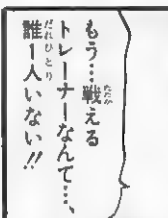 もう…戦える
トレーナーなんて…、
誰1人いない!!